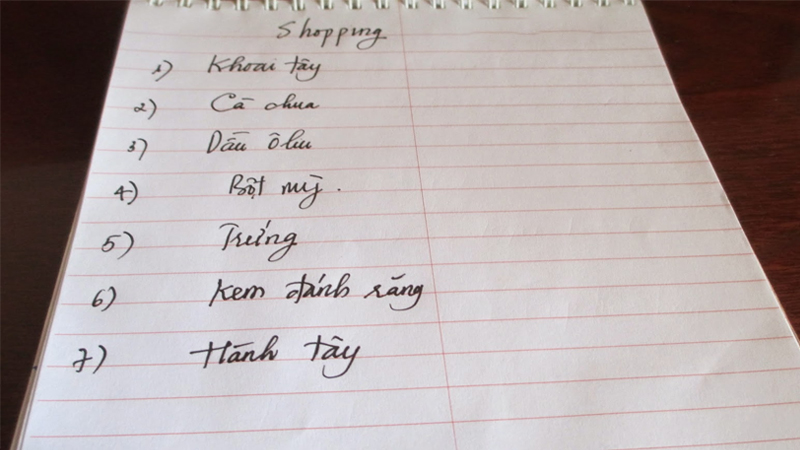 Shopping
1) Khoai tây
2) Cà chua
3) Dầu ôliu
4) Bột mỳ.
5) Trứng
6) Kem đánh răng
7) Hành tây